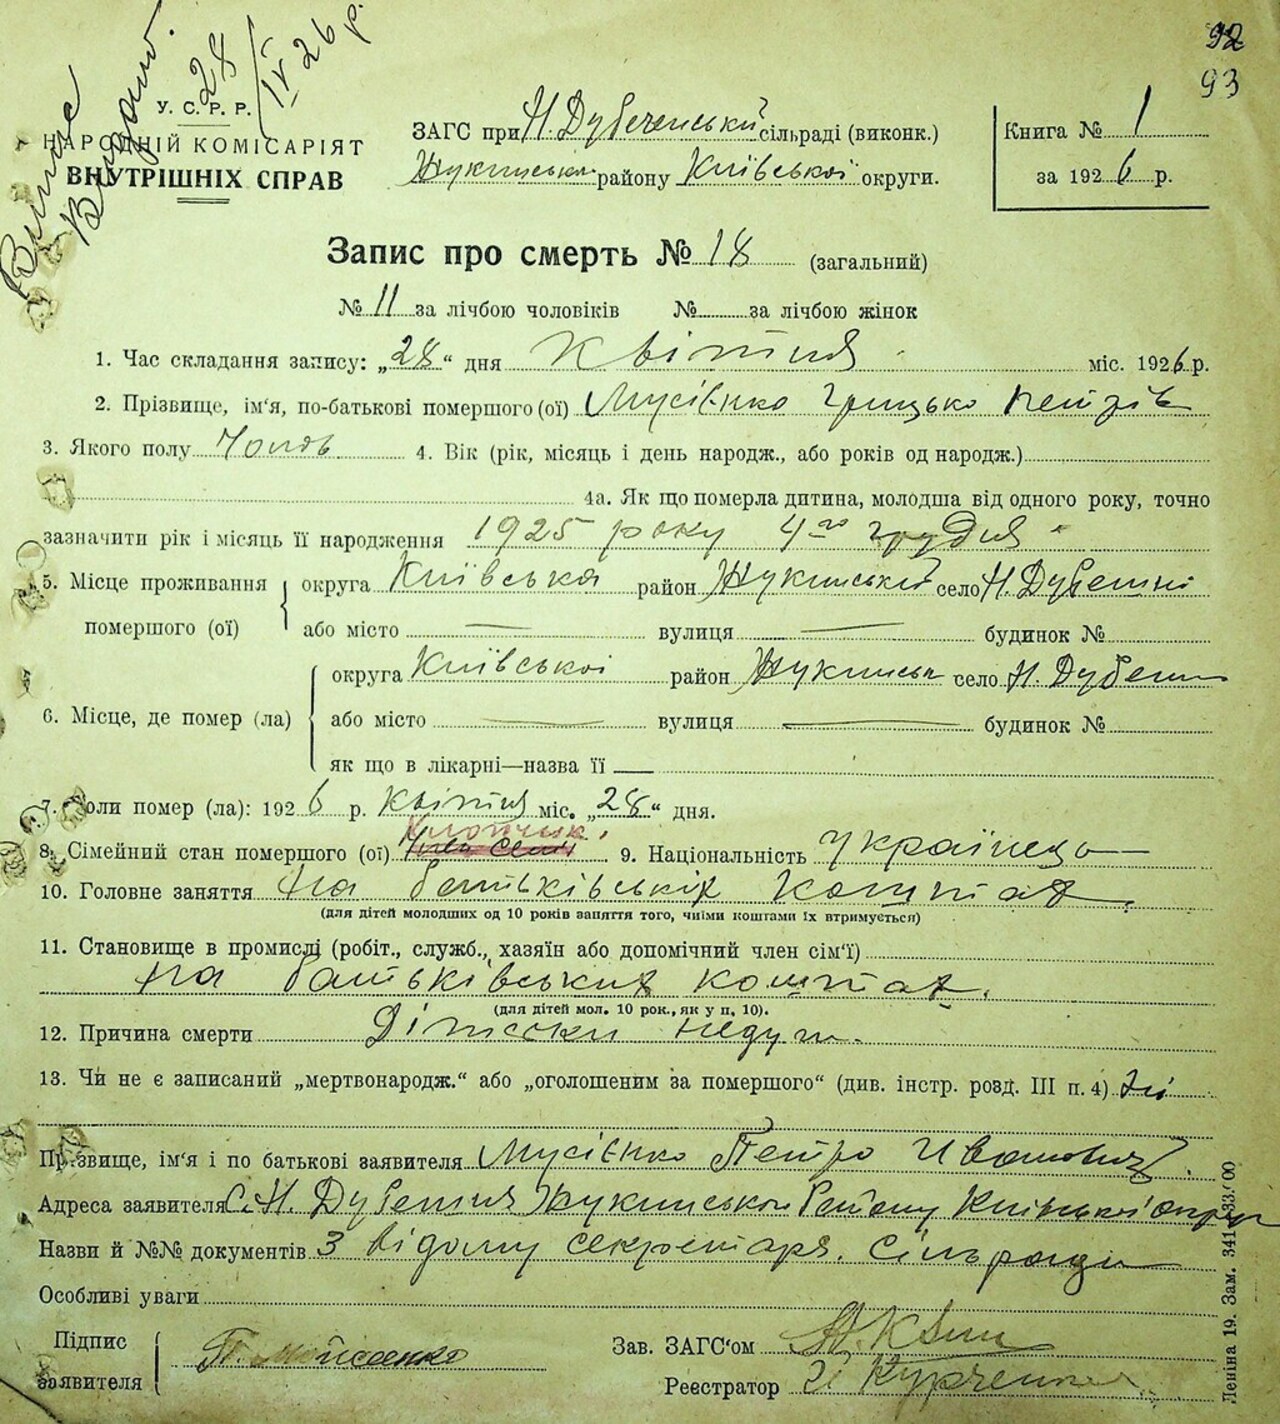 92
93
Випис
Видано
28/IV 26 р.
У. С. Р. Р.
НАРОДНІЙ КОМІСАРІЯТ
ВНУТРІШНІХ СПРАВ
ЗАГС при Н. Дубеченській сільраді (виконк.)
Жукинськ. району Київської округи.
Книга № 1
за 1926 р.
Запис про смерть № 18 (загальний)
№ 11 за лічбою чоловіків № за лічбою жінок
1. Час складання запису: „28“ дня Квітня міс. 1926 р.
2. Прізвище, ім'я, по-батькові помершого (ої) Мусієнко Грицько Петрів
3. Якого полу Чолов. 4. Вік (рік, місяць і день народж., або років од народж.)
4а. Як що померла дитина, молодша від одного року, точно
зазначити рік і місяць її народження 1925 року 4го грудня
5. Місце проживання помершого (ої) округа Київська район Жукинський село Н. Дубешні
або місто — вулиця — будинок №
6. Місце, де помер (ла) округа Київської район Жукинськ село Н. Дубешн
або місто — вулиця — будинок №
як що в лікарні—назва її —
7. Коли помер (ла): 1926 р. Квітня міс. „28“ дня.
8. Сімейний стан помершого (ої) Хлопчик. 9. Національність Українець
10. Головне заняття На батьківських коштах.
(для дітей молодших од 10 років заняття того, чиїми коштами їх втримується)
11. Становище в промислі (робіт., служб., хазяїн або допомічний член сім'ї)
на батьківських коштах.
(для дітей мол. 10 рок., як у п. 10).
12. Причина смерти Дітські недуги.
13. Чи не є записаний „мертвонародж.“ або „оголошеним за помершого“ (див. інстр. розд. III п. 4) Ні
Прізвище, ім'я і по батькові заявителя Мусієнко Петро Иванович.
Адреса заявителя С. Н. Дубешня Жукинського Району Київської округи
Назви й №№ документів З відому секретаря. Сільради
Особливі уваги
Підпис заявителя П. Мойсеенко
Зав. ЗАГС'ом
Реєстратор Курченко
Леніна 19. Зам. 341-33.00